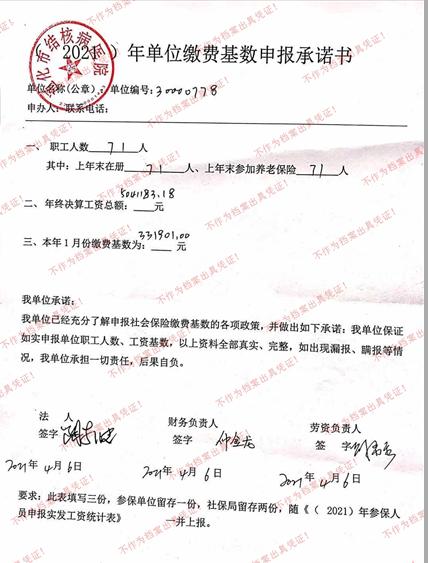 （ 2021 ）年单位缴费基数申报承诺书
单位名称(公章)： 单位编号:30000778
申办人: 联系电话:
一、 职工人数 71 人
其中: 上年末在册 71 人、上年末参加养老保险 71 人
二、年终决算工资总额: 5041183.18 元
三、本年1月份缴费基数为: 331901.00 元
我单位承诺:
我单位已经充分了解申报社会保险缴费基数的各项政策，并做出如下承诺: 我单位保证
如实申报单位职工人数、工资基数，以上资料全部真实、完整，如出现漏报、瞒报等情
况，我单位承担一切责任，后果自负。
法 人 财务负责人 劳资负责人
签字 签字 签 字
2021年 4月6日 2021年 4月6日 2021年 4月6日
要求: 此表填写三份，参保单位留存一份，社保局留存两份，随《（ 2021）年参保人
员申报实发工资统计表》 一并上报。
市结核病医院
不作为档案出具凭证！